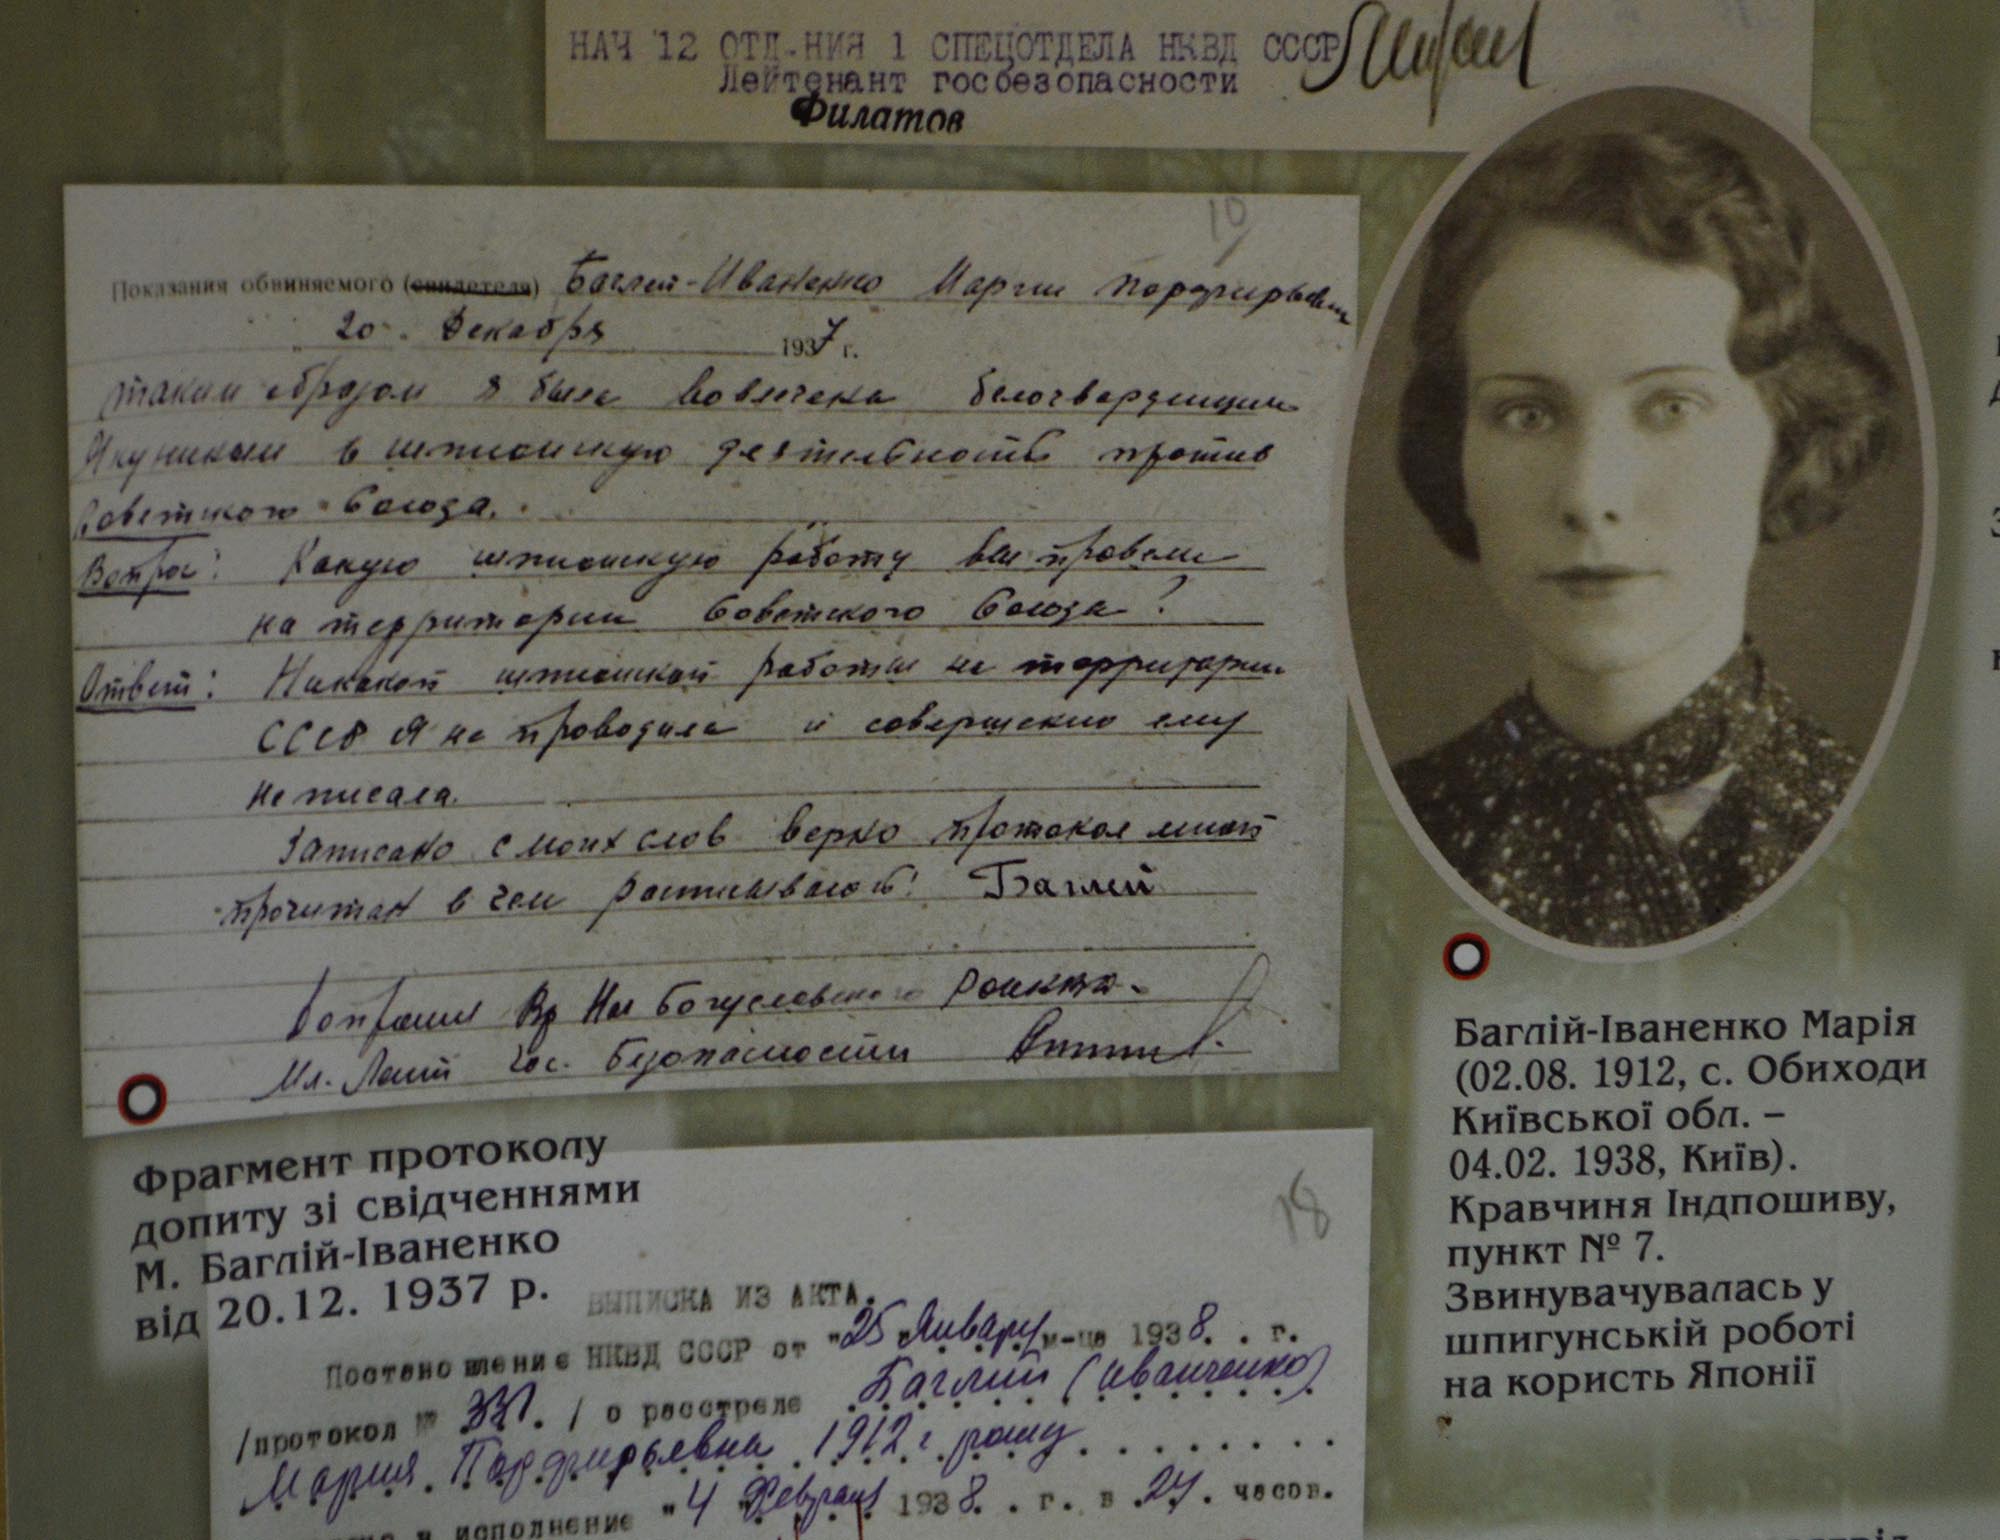 НАЧ 12 ОТД-НИЯ 1 СПЕЦОТДЕЛА НКВД СССР
Лейтенант госбезопасности
Филатов
10
Показания обвиняемого (свидетеля) Баглей-Иваненко Марии Порфирьевны
20. Декабря 1937 г.
таким образом я была вовлечена белогвардейцем
Якуникам в шпионскую деятельность против
Советского Союза.
Вопрос: Какую шпионскую работу вы провели
на территории Советского Союза?
Ответ: Никакой шпионской работы на территории
СССР я не проводила и совершенно ему
не писала.
Записано с моих слов верно протокол мной
прочитан в чем расписываюсь: Баглей
Допросил Вр Нач Богуславского
Мл. Лейт Гос. Безопасности
Фрагмент протоколу
допиту зі свідченнями
М. Баглій-Іваненко
від 20.12. 1937 р.
18
ВЫПИСКА ИЗ АКТА.
Постановление НКВД СССР от "25 Января м-ца 1938. . г.
/протокол № / о расстреле Баглий (Иванченко)
Мария Порфирьевна 1912 г
в исполнение "4 Февраля 1938. . г. в 24. часов.
Баглій-Іваненко Марія
(02.08. 1912, с. Обиходи
Київської обл. –
04.02. 1938, Київ).
Кравчиня Індпошиву,
пункт № 7.
Звинувачувалась у
шпигунській роботі
на користь Японії